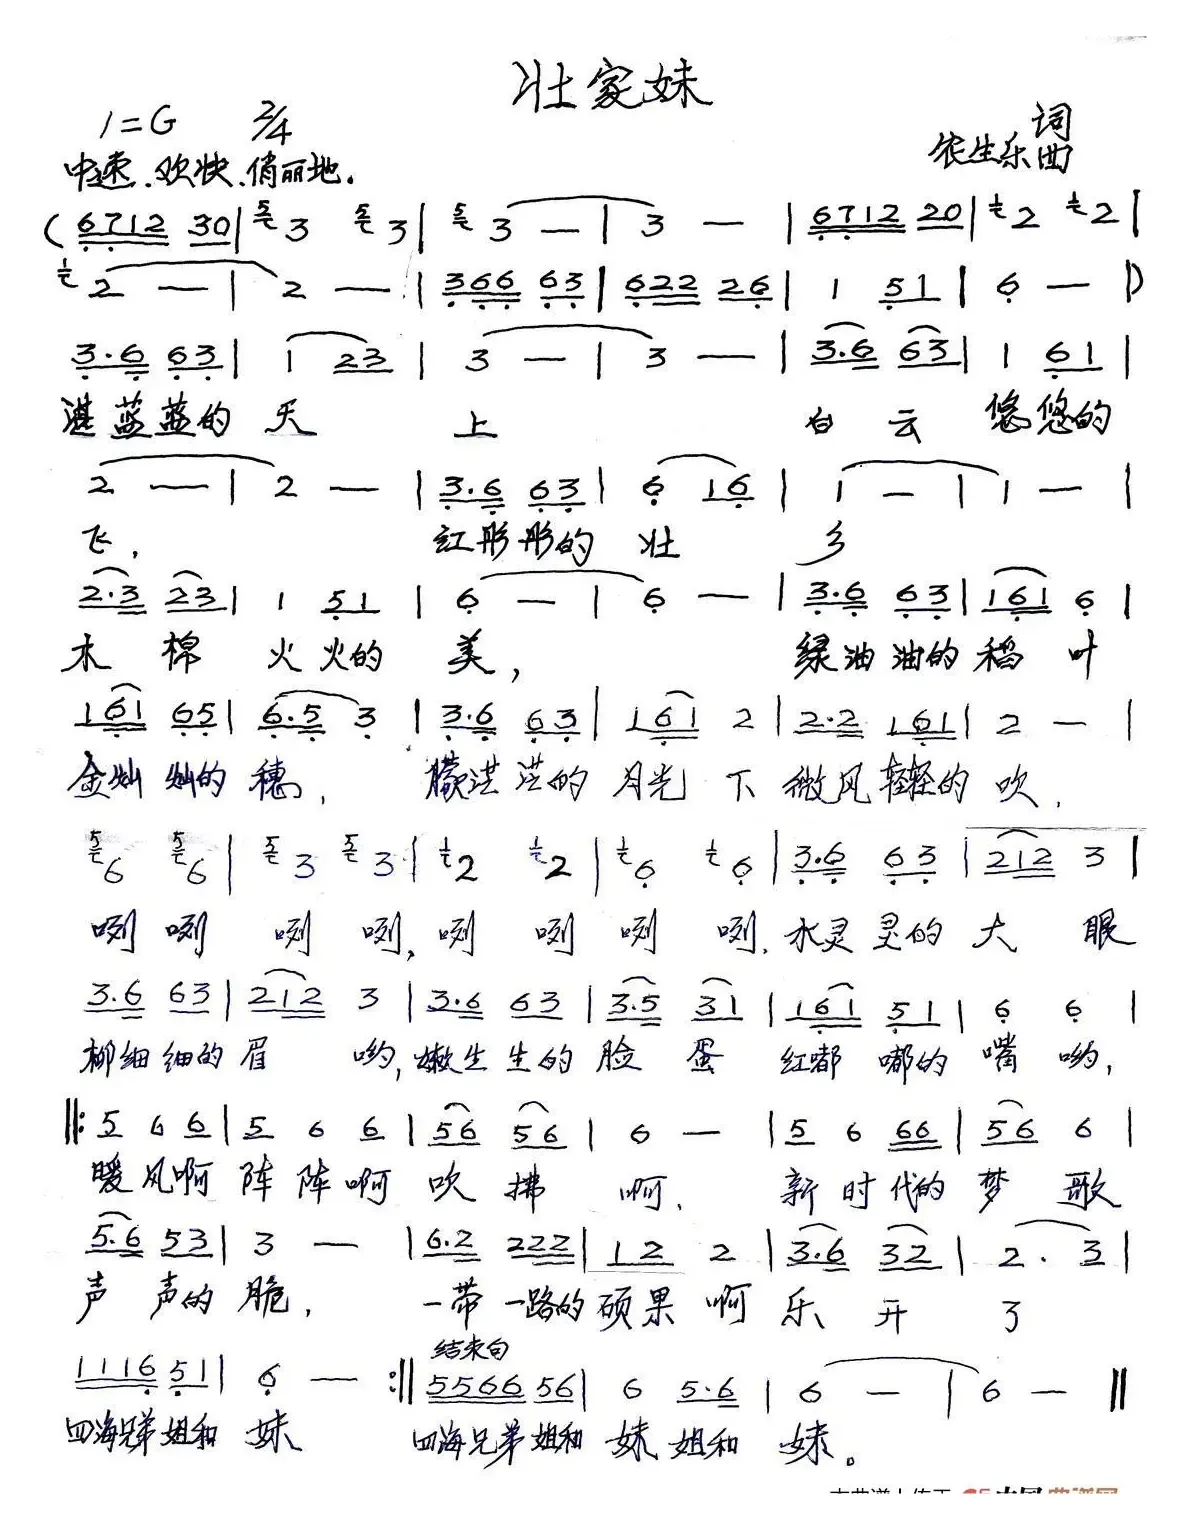 壮家妹
1=G 2/4 词
中速.欢快.俏丽地. 侬生乐 曲
(6712 30| 5 3 5 3| 5 3 — | 3 — | 6712 20| 1 2 1 2|
1 2 — | 2 — | 366 63| 622 26| 1 51 | 6 — |)
3.6 63| 1 23 | 3 — | 3 — | 3.6 63| 1 61 |
湛蓝蓝的 天 上 白 云 悠悠的
2 — | 2 — | 3.6 63| 6 16 | 1 — | 1 — |
飞, 红彤彤的 壮 乡
2.3 23| 1 51 | 6 — | 6 — | 3.6 63| 161 6 |
木 棉 火火的 美, 绿油油的 稻 叶
161 65| 6.5 3 | 3.6 63| 161 2 | 2.2 161| 2 — |
金灿灿的 穗, 朦洪洪的 月光 下 微风轻轻的 吹.
5 6 5 6 | 5 3 5 3 | 1 2 1 2 | 1 6 1 6 | 3.6 63 | 212 3 |
咧 咧 咧 咧, 咧 咧 咧 咧. 水灵灵的 大 眼
3.6 63 | 212 3 | 3.6 63 | 3.5 31 | 161 51 | 6 6 |
柳细细的 眉 哟, 嫩生生的 脸 蛋 红嘟嘟的 嘴 哟,
‖: 5 6 6 | 5 6 6 | 56 56 | 6 — | 5 6 66 | 56 6 |
暖风啊 阵阵啊 吹 拂 啊. 新时代的 梦 歌
5.6 53| 3 — | 6.2 222| 12 2 | 3.6 32 | 2. 3 |
声 声的 脆, 一带一路的 硕果 啊 乐 开 了
结束句
1116 51| 6 — :‖ 5566 56| 6 5.6 | 6 — | 6 — ‖
四海兄弟姐和 妹 四海兄弟姐和 妹 姐和 妹。